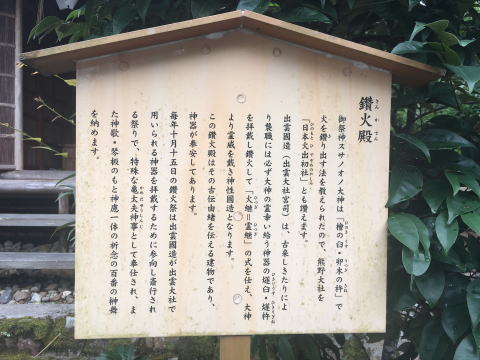 鑽火殿
さんかでん
御祭神スサノオノ大神は「檜の臼・卯木の杵」で
火を鑽り出す法を教えられたので、熊野大社を
「日本火出初社」とも讃えます。
出雲國造（出雲大社宮司）は、古来しきたりによ
り襲職には必ず大神の霊幸い給う神器の燧臼・燧杵
を拝戴し鑽火して「火継＝霊継」の式を仕え、大神
より霊威を戴き神性國造となります。
この鑽火殿はその古伝由緒を伝える建物であり、
神器が奉安してあります。
毎年十月十五日の鑽火祭は出雲國造が出雲大社で
用いられる神器を拝戴するために参向し斎行され
る祭りで、特殊な亀太夫神事として奉仕され、ま
た神歌・琴板のもと神應一体の祈念の百番の榊舞
を納めます。